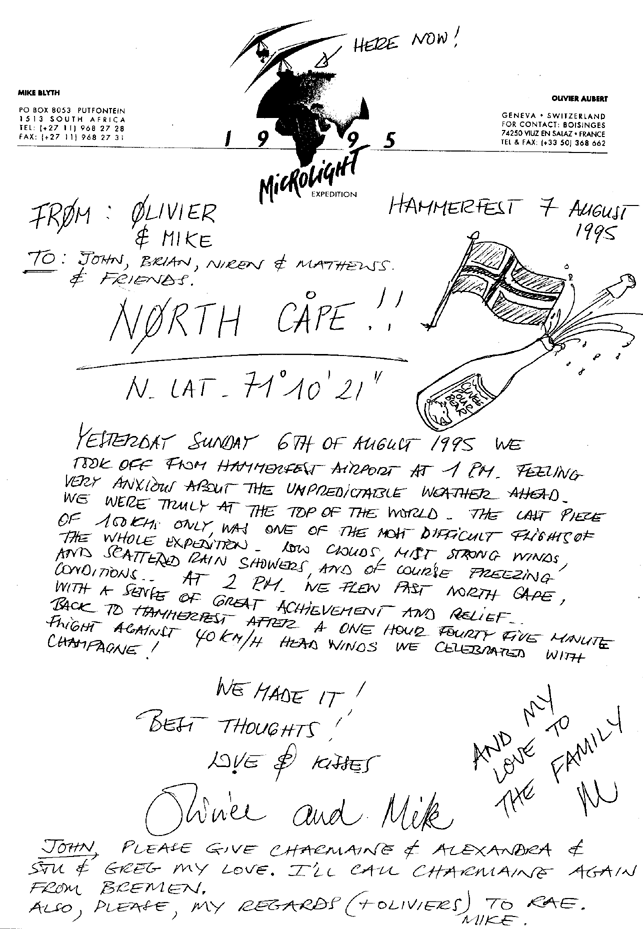 HERE NOW!
MIKE BLYTH
PO BOX 8053 PUTFONTEIN
1513 SOUTH AFRICA
TEL: (+27 11) 968 27 28
FAX: (+27 11) 968 27 31
OLIVIER AUBERT
GENEVA • SWITZERLAND
FOR CONTACT: BOISINGES
74250 VIUZ EN SALAZ • FRANCE
TEL & FAX: (+33 50) 368 662
1995
MICROLIGHT
EXPEDITION
HAMMERFEST 7 AUGUST
1995
FRØM : ØLIVIER
& MIKE
TO: JOHN, BRIAN, NIREN & MATHEWS.
& FRIENDS.
NØRTH CÅPE !!
N. LAT. 71°10'21"
YESTERDAY SUNDAY 6TH OF AUGUST 1995 WE
TOOK OFF FROM HAMMERFEST AIRPORT AT 1 PM. FEELING
VERY ANXIOUS ABOUT THE UNPREDICTABLE WEATHER AHEAD.
WE WERE TRULY AT THE TOP OF THE WORLD. THE LAST PIECE
OF KM ONLY, WAS ONE OF THE MOST DIFFICULT FLIGHTS OF
THE WHOLE EXPEDITION. LOW CLOUDS, MIST STRONG WINDS,
AND SCATTERED RAIN SHOWERS, AND OF COURSE FREEZING
CONDITIONS... AT 2 PM. WE FLEW PAST NORTH CAPE,
WITH A SENSE OF GREAT ACHIEVEMENT AND RELIEF...
BACK TO HAMMERFEST AFTER A ONE HOUR FOURTY FIVE MINUTE
FLIGHT AGAINST 40 KM/H HEAD WINDS WE CELEBRATED WITH
CHAMPAGNE!
WE MADE IT!
BEST THOUGHTS!
LOVE & KISSES
AND MY
LOVE TO
THE FAMILY
M
Olivier and Mike
JOHN, PLEASE GIVE CHARMAINE & ALEXANDRA &
STU & GREG MY LOVE. I'LL CALL CHARMAINE AGAIN
FROM BREMEN.
ALSO, PLEASE, MY REGARDS (+OLIVIERS) TO RAE.
MIKE.